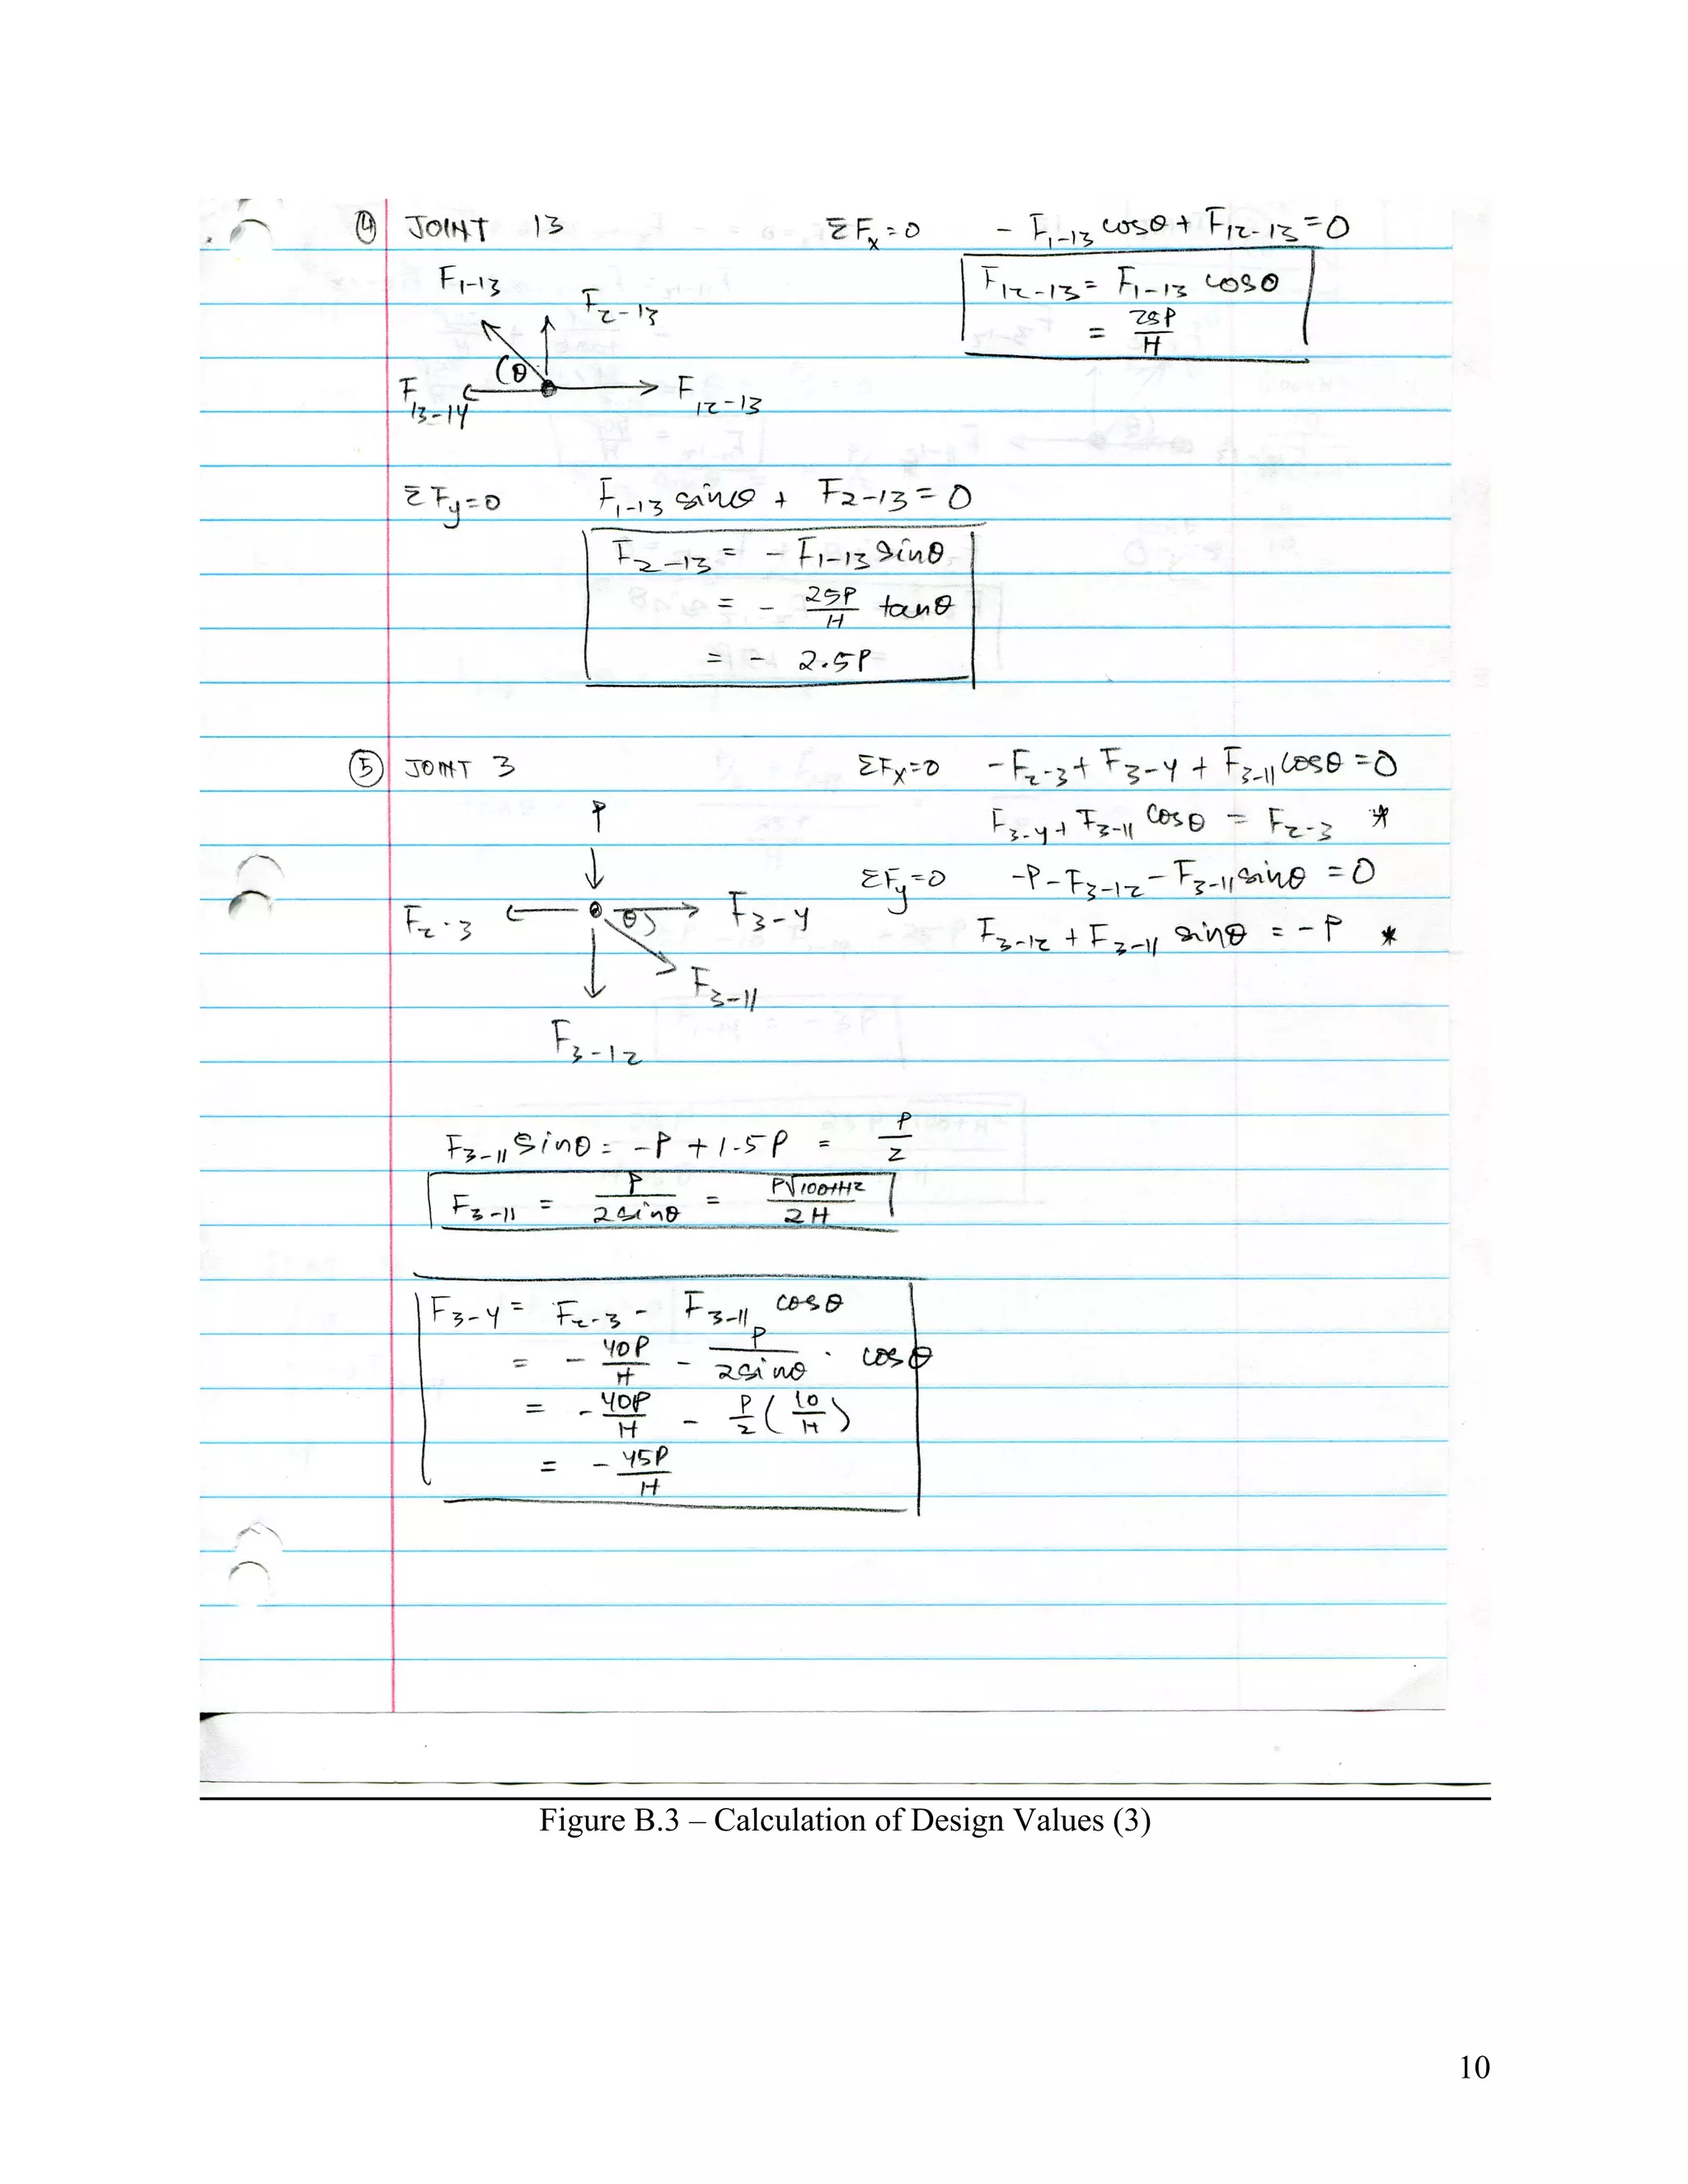 ④ JOINT 13 ΣFx=0 - F1-13 cosθ + F12-13 = 0
F1-13 F2-13 F12-13 = F1-13 cosθ
= 25P/H
(θ
F13-14 F12-13
ΣFy=0 F1-13 sinθ + F2-13 = 0
F2-13 = - F1-13 sinθ
= - 25P/H tanθ
= - 2.5P
⑤ JOINT 3 ΣFx=0 -F2-3 + F3-4 + F3-11 cosθ = 0
P F3-4 + F3-11 cosθ = F2-3 *
ΣFy=0 -P - F3-12 - F3-11 sinθ = 0
F2-3 θ) F3-4 F3-12 + F3-11 sinθ = -P *
F3-11
F3-12
F3-11 sinθ = -P + 1.5P = P/2
F3-11 = P/2sinθ = P√100+H2/2H
F3-4 = F2-3 - F3-11 cosθ
= - 40P/H - P/2sinθ · cosθ
= - 40P/H - P/2 (10/H)
= - 45P/H
Figure B.3 – Calculation of Design Values (3)
10